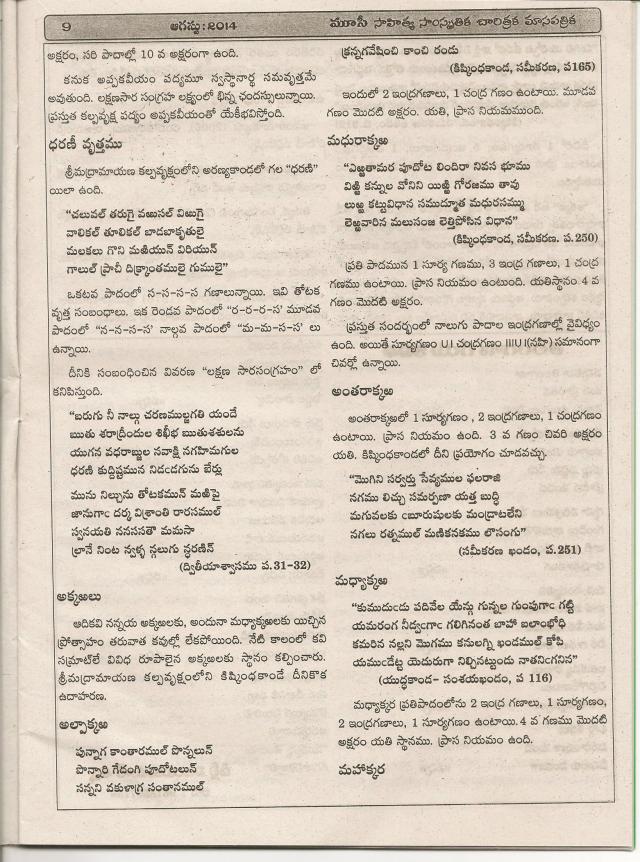 9 ఆగస్టు: 2014 మూసీ సాహిత్య సాంస్కృతిక చారిత్రక మాసపత్రిక
అక్షరం, సరి పాదాల్లో 10 వ అక్షరంగా ఉంది.
కనుక అప్పకవీయం పద్యమూ స్వస్థానార్థ సమవృత్తమే
అవుతుంది. లక్షణసార సంగ్రహ లక్ష్యంలో భిన్న ఛందస్సులున్నాయి.
ప్రస్తుత కల్పవృక్ష పద్యం అప్పకవీయంతో యేకీభవిస్తోంది.
ధరణీ వృత్తము
శ్రీమద్రామాయణ కల్పవృక్షంలోని అరణ్యకాండలో గల “ధరణి”
యిలా ఉంది.
“చలువల్ తరుగై వఱుసల్ విఱుగై
వాలికల్ తూలికల్ బాడబాకృతులై
మలకలు గొని మఱియున్ విరియున్
గాలుల్ ప్రాచీ దిక్ప్రాంతములై గుములై”
ఒకటవ పాదంలో స-స-స-స గణాలున్నాయి. ఇవి తోటక
వృత్త సంబంధాలు. ఇక రెండవ పాదంలో “ర-ర-ర-స' మూడవ
పాదంలో “న-న-స-స' నాల్గవ పాదంలో “మ-మ-స-స' లు
ఉన్నాయి.
దీనికి సంబంధించిన వివరణ “లక్షణ సారసంగ్రహం” లో
కనిపిస్తుంది.
“బరుగు నీ నాల్గు చరణముల్జగతి యందే
ఋతు శరాద్రీందుల శిఖీభ ఋతుశశులను
యుగన వధరాబ్జుల నవాక్షి నగహిమగుల
ధరణి కుద్దిష్టమున నిడఁడగును బేర్లు
మును నిల్చును తోటకమున్ మఱిపై
జానుగాఁ దర్మ విశ్రాంతి రారసముల్
స్వనయతి ననససతౌ మమసా
భ్రానే నింట న్వళ్ళ న్దగులు గ్ధరణిన్
(ద్వితీయాశ్వాసము ప.31-32)
అక్కఱలు
ఆదికవి నన్నయ అక్కఱలకు, అందునా మధ్యాక్కఱలకు యిచ్చిన
ప్రోత్సాహం తరువాత కవుల్లో లేకపోయింది. నేటి కాలంలో కవి
సమ్రాట్‌లే వివిధ రూపాలైన అక్కఱలకు స్థానం కల్పించారు.
శ్రీమద్రామాయణ కల్పవృక్షంలోని కిష్కింధకాండే దీనికొక
ఉదాహరణ.
అల్పాక్కఱ
పున్నాగ కాంతారముల్ పొన్నలున్
పొన్నారి గేదంగి పూదోటలున్
సన్నని వకుళాగ్ర సంతానముల్
క్రన్నగవేషించి కాంచి రండు
(కిష్కింధకాండ, సమీకరణ, ప165)
ఇందులో 2 ఇంద్రగణాలు, 1 చంద్ర గణం ఉంటాయి. మూడవ
గణం మొదటి అక్షరం. యతి, ప్రాస నియమముంది.
మధురాక్కఱ
“ఎఱ్ఱతామర పూదోట లిందిరా నివస భూము
విఱ్ఱి కన్నుల వోనిని యిఱ్ఱి గోరజము తావు
లుఱ్ఱ కట్టువిధాన సముద్భూత మధురసమ్ము
లెఱ్ఱవారిన మలుసంజ లెత్తిపోసిన విధాన”
(కిష్కింధకాండ, సమీకరణ. ప.250)
ప్రతి పాదమున 1 సూర్య గణము, 3 ఇంద్ర గణాలు, 1 చంద్ర
గణము ఉంటాయి. ప్రాస నియమం ఉంటుంది. యతిస్థానం 4 వ
గణం మొదటి అక్షరం.
ప్రస్తుత సందర్భంలో నాలుగు పాదాల ఇంద్రగణాల్లో వైవిధ్యం
ఉంది. అయితే సూర్యగణం UI చంద్రగణం IIIU I(నహ) సమానంగా
చివర్లో ఉన్నాయి.
అంతరాక్కఱ
అంతరాక్కఱలో 1 సూర్యగణం , 2 ఇంద్రగణాలు, 1 చంద్రగణం
ఉంటాయి. ప్రాస నియమం ఉంది. 3 వ గణం చివరి అక్షరం
యతి. కిష్కింధకాండలో దీని ప్రయోగం చూడవచ్చు.
“మొగిని సర్వర్తు సేవ్యముల ఫలరాజి
నగము లిచ్చు సమర్పణా యత్త బుద్ధి
మగువలకుఁ బూరుషులకు మండ్రాటలేని
నగలు రత్నముల్ మణికనకము లొసంగు”
(సమీకరణ ఖండం, ప.251)
మధ్యాక్కఱ
“కుముదుఁడు పదివేల యేన్గు గున్నల గుంపుగాఁ గట్టి
యమరంగ నీడ్వఁగాఁ గలిగినంత బాహా బలాంభోధి
కమరిన నల్లని మొగము కనులగ్ని ఖండముల్ కోపి
యముఁడేట్ట యెదురుగా నిల్చినట్టుండు నాతనిఁగనిన”
(యుద్ధకాండ- సంశయఖండం, ప 116)
మధ్యాక్కర ప్రతిపాదంలోను 2 ఇంద్ర గణాలు, 1 సూర్యగణం,
2 ఇంద్రగణాలు, 1 సూర్యగణం ఉంటాయి. 4 వ గణము మొదటి
అక్షరం యతి స్థానము. ప్రాస నియమం ఉంది.
మహాక్కర